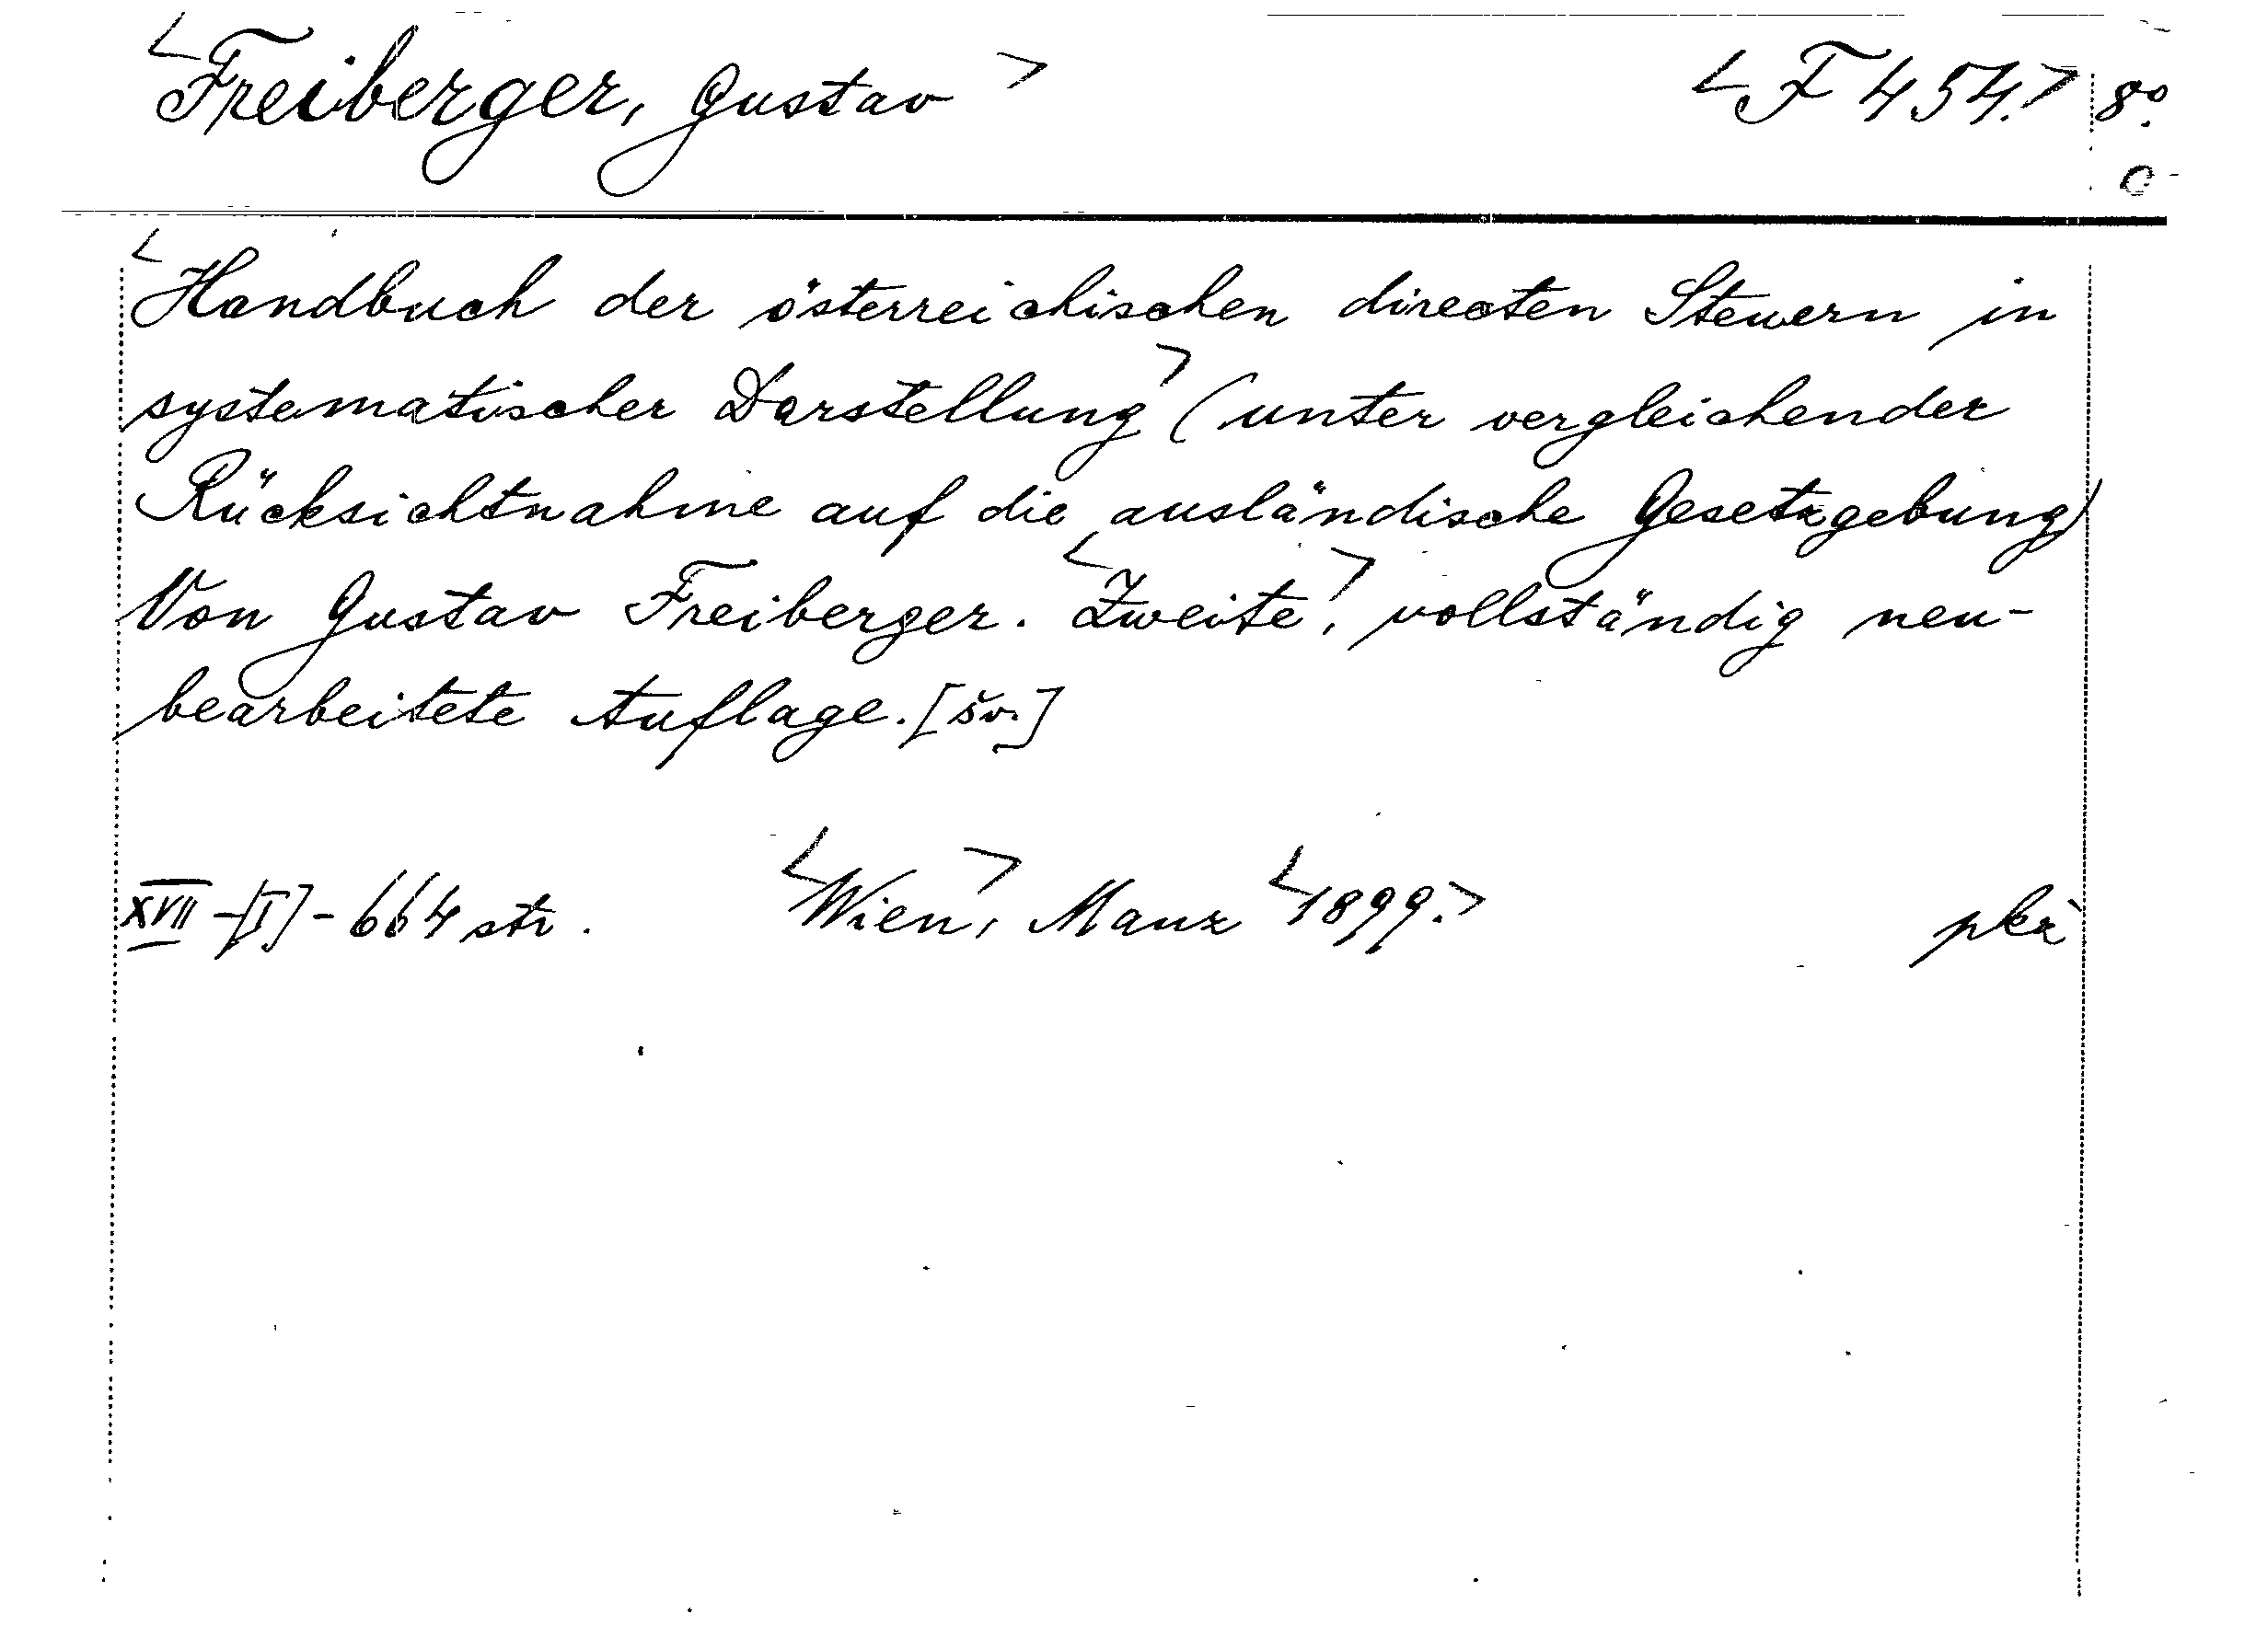 <Freiberger, Gustav> <F 454.> 8°.
c
<Handbuch der österreichischen directen Steuern in
systematischer Darstellung> (unter vergleichender
Rücksichtnahme auf die ausländische Gesetzgebung)
Von Gustav Freiberger. <Zweite>, vollständig neu-
bearbeitete Auflage. [šv.]
XVII-[I]-664 str. <Wien>, Manz <1899.>